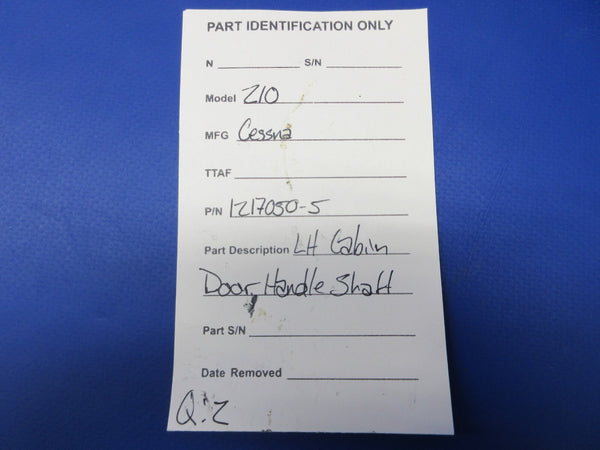 PART IDENTIFICATION ONLY
N ____________ S/N ____________
Model 210
MFG Cessna
TTAF ____________
P/N 1217050-5
Part Description LH Cabin
Door Handle Shaft
Part S/N ____________
Date Removed ____________
Q:2